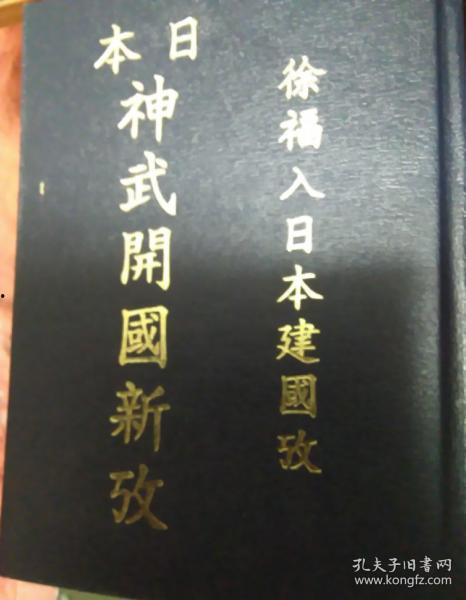 徐福入日本建國攷
日本
神武開國新攷
孔夫子旧书网
www.kongfz.com